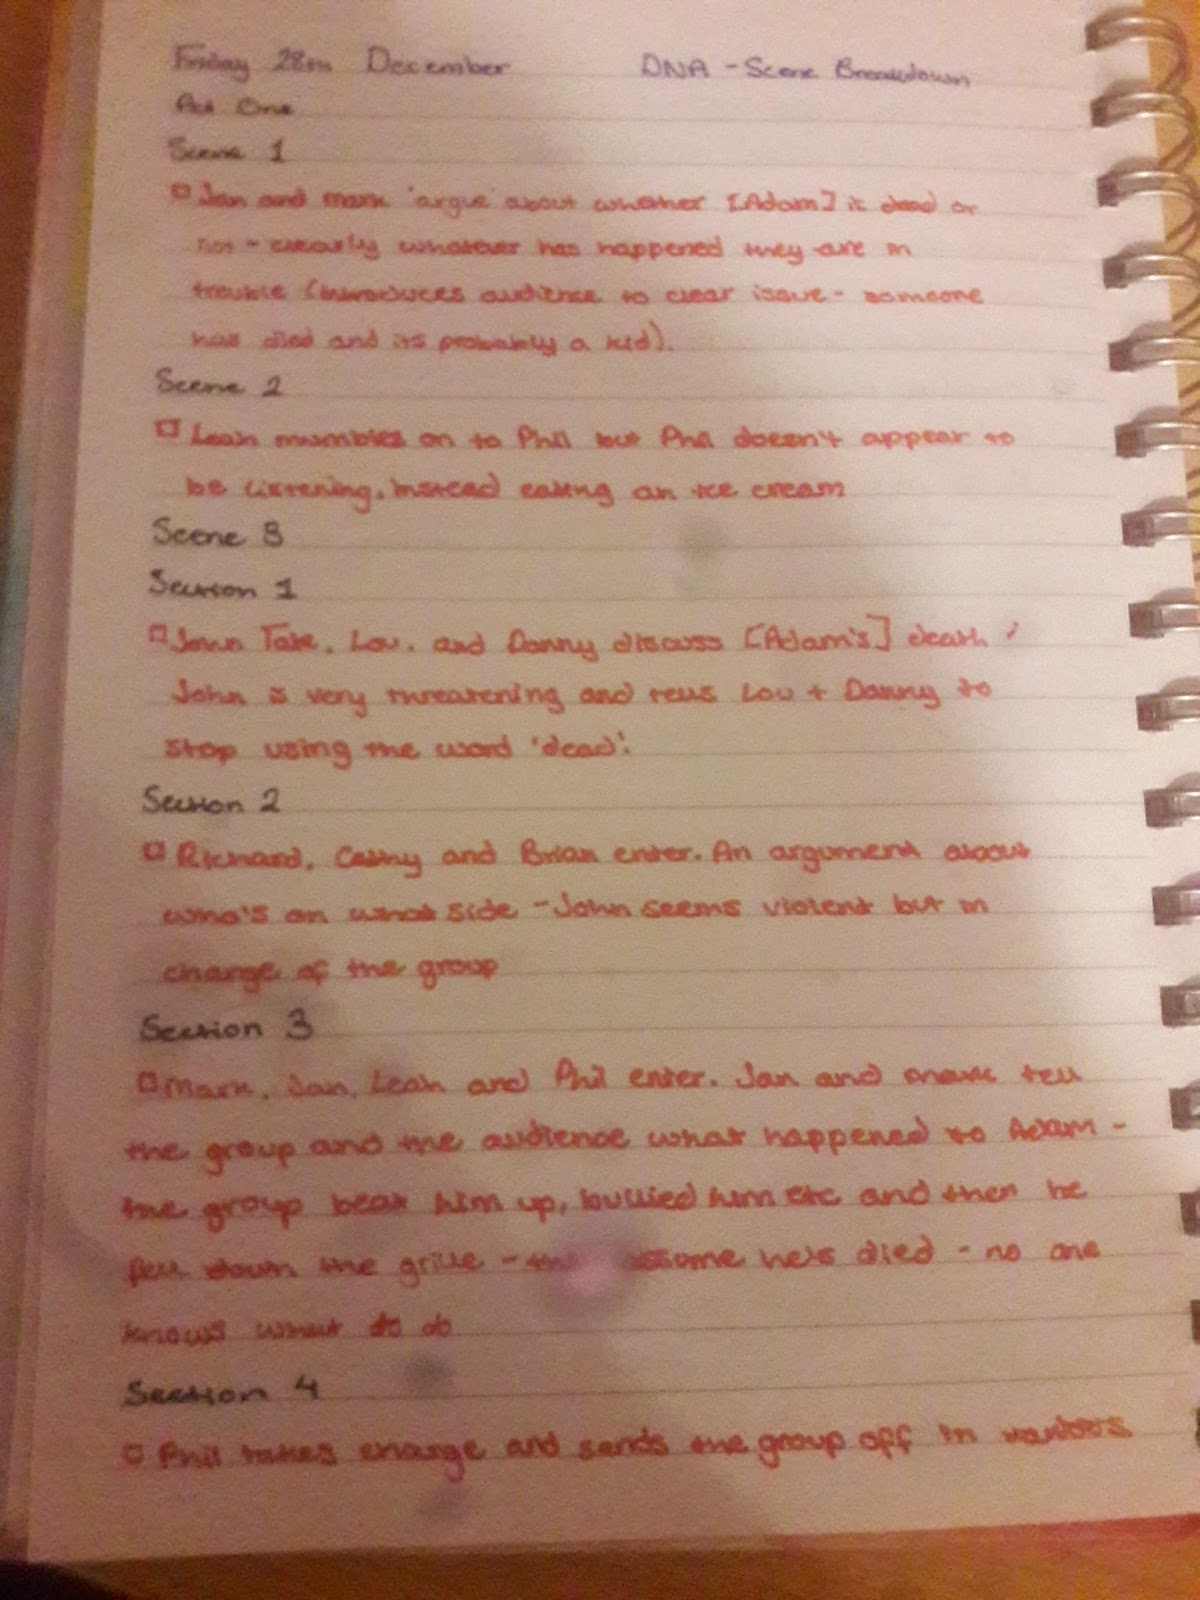 Friday 28th December DNA - Scene Breakdown
Act One
Scene 1
Jan and mark 'argue' about whether [Adam] is dead or
not - clearly whatever has happened they are in
trouble (introduces audience to clear issue - someone
has died and its probably a kid).
Scene 2
Leah mumbles on to Phil but Phil doesn't appear to
be listening, instead eating an ice cream
Scene 3
Section 1
John Tate, Lou, and Danny discuss [Adam's] death
John is very threatening and tells Lou + Danny to
stop using the word 'dead'.
Section 2
Richard, Cathy and Brian enter. An argument about
who's on what side - John seems violent but in
charge of the group
Section 3
Mark, Jan, Leah and Phil enter. Jan and mark tell
the group and the audience what happened to Adam -
the group beat him up, bullied him etc and then he
fell down the grille - they assume he's died - no one
knows what to do
Section 4
Phil takes charge and sends the group off in